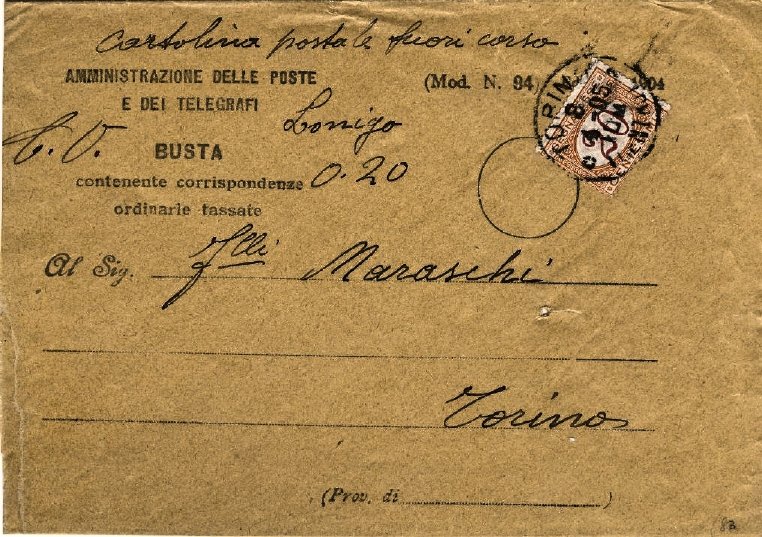 Cartolina postale fuori corso
AMMINISTRAZIONE DELLE POSTE
E DEI TELEGRAFI
(Mod. N. 94)
1904
TORINO
8
05
20
Lonigo
C. V.
BUSTA
contenente corrispondenze
ordinarie tassate
0.20
Al Sig. Flli Maraschi
Torino
(Prov. di )